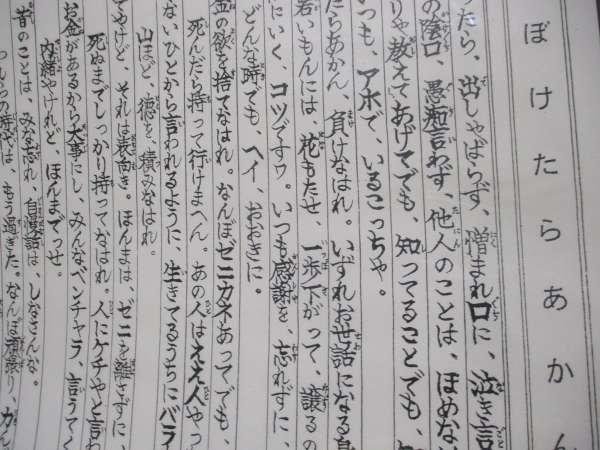 ぼけたらあかん
ったら、出しゃばらず、憎まれ口に、泣き言
の陰口、愚痴言わず、他人のことは、ほめな
りゃ教えてあげてでも、知ってることでも、
いつも、アホで、いるこっちゃ。
たらあかん、負けなはれ。いずれお世話になる身
若いもんには、花もたせ、一歩下がって、譲るの
にいく、コツですワ。いつも感謝を、忘れずに、
どんな時でも、ヘイ、おおきに。
金の欲を捨てなはれ。なんぼゼニカネあってでも、
死んだら持って行けまへん。あの人はええ人やっ
ないひとから言われるように、生きてるうちにバラ
山ほど、徳を、積みなはれ。
てやけど、それは表向き。ほんまは、ゼニを離さずに、
死ぬまでしっかり持ってなはれ。人にケチやと言わ
お金があるから大事にし、みんなベンチャラ、言うて
内緒やけれど、ほんまでっせ。
昔のことは、みな忘れ、自慢話は、しなさんな。
の時代は、もう過ぎた。なんぼ頑張り、力ん